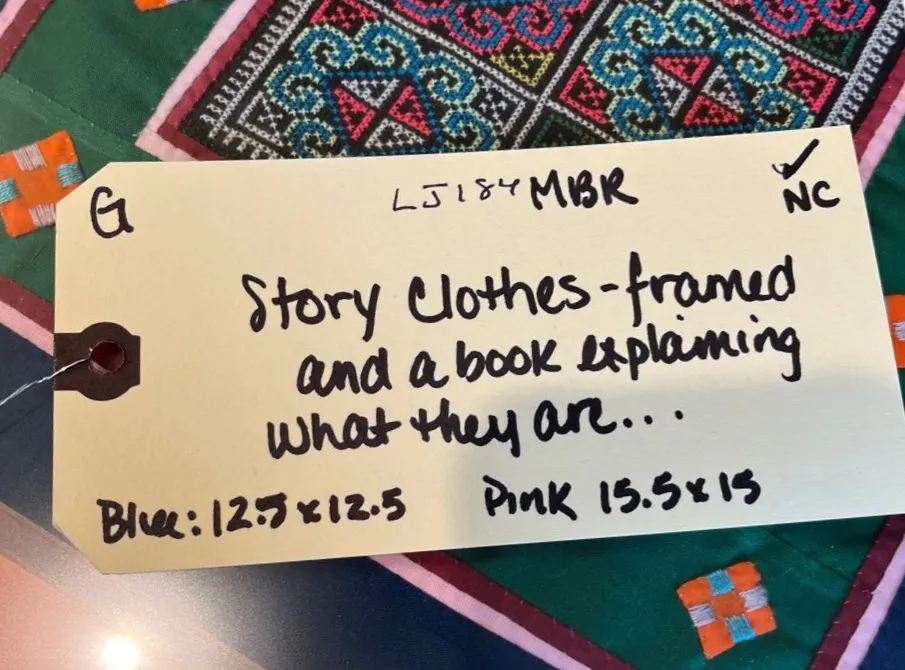 G
LJ184 MBR
✓
NC
Story Clothes-framed
and a book explaining
what they are...
Blue: 12.5 x 12.5 Pink 15.5 x 15